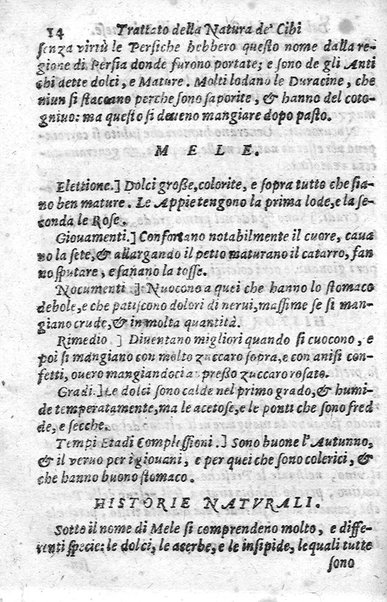 14 Trattato della Natura de' Cibi
senza virtù le Persiche hebbero questo nome dalla re-
gione di Persia donde furono portate; e sono de gli Anti
chi dette dolci, e Mature. Molti lodano le Duracine, che
niun si staccano perche sono saporite, & hanno del coto-
gniuo: ma questo si deueno mangiare dopo pasto.
MELE.
Elettione.] Dolci große, colorite, e sopra tutto che sia-
no ben mature. Le Appie tengono la prima lode, e la se-
conda le Rose.
Giouamenti.] Confortano notabilmente il cuore, caua
no la sete, & allargando il petto maturano il catarro, fan
no sputare, e sanano la tosse.
Nocumenti.] Nuocono a quei che hanno lo stomaco
debole, e che patiscono dolori di nerui, massime se si man-
giano crude, & in molta quantità.
Rimedio.] Diuentano migliori quando si cuocono, e
poi si mangiano con molto zuccaro sopra, e con anisi con-
fetti, ouero mangiandoci apreßo zuccaro rosato.
Gradi.] Le dolci sono calde nel primo grado, & humi-
de temperatamente, ma le acetose, e le ponti che sono fred
de, e secche.
Tempi Etadi Complessioni.] Sono buone l'Autunno,
& il verno per i giouani, e per quei che sono colerici, &
che hanno buono stomaco.
HISTORIE NATVRALI.
Sotto il nome di Mele si comprendeno molto, e diffe-
renti specie: le dolci, le acerbe, e le insipide, le quali tutte
sono